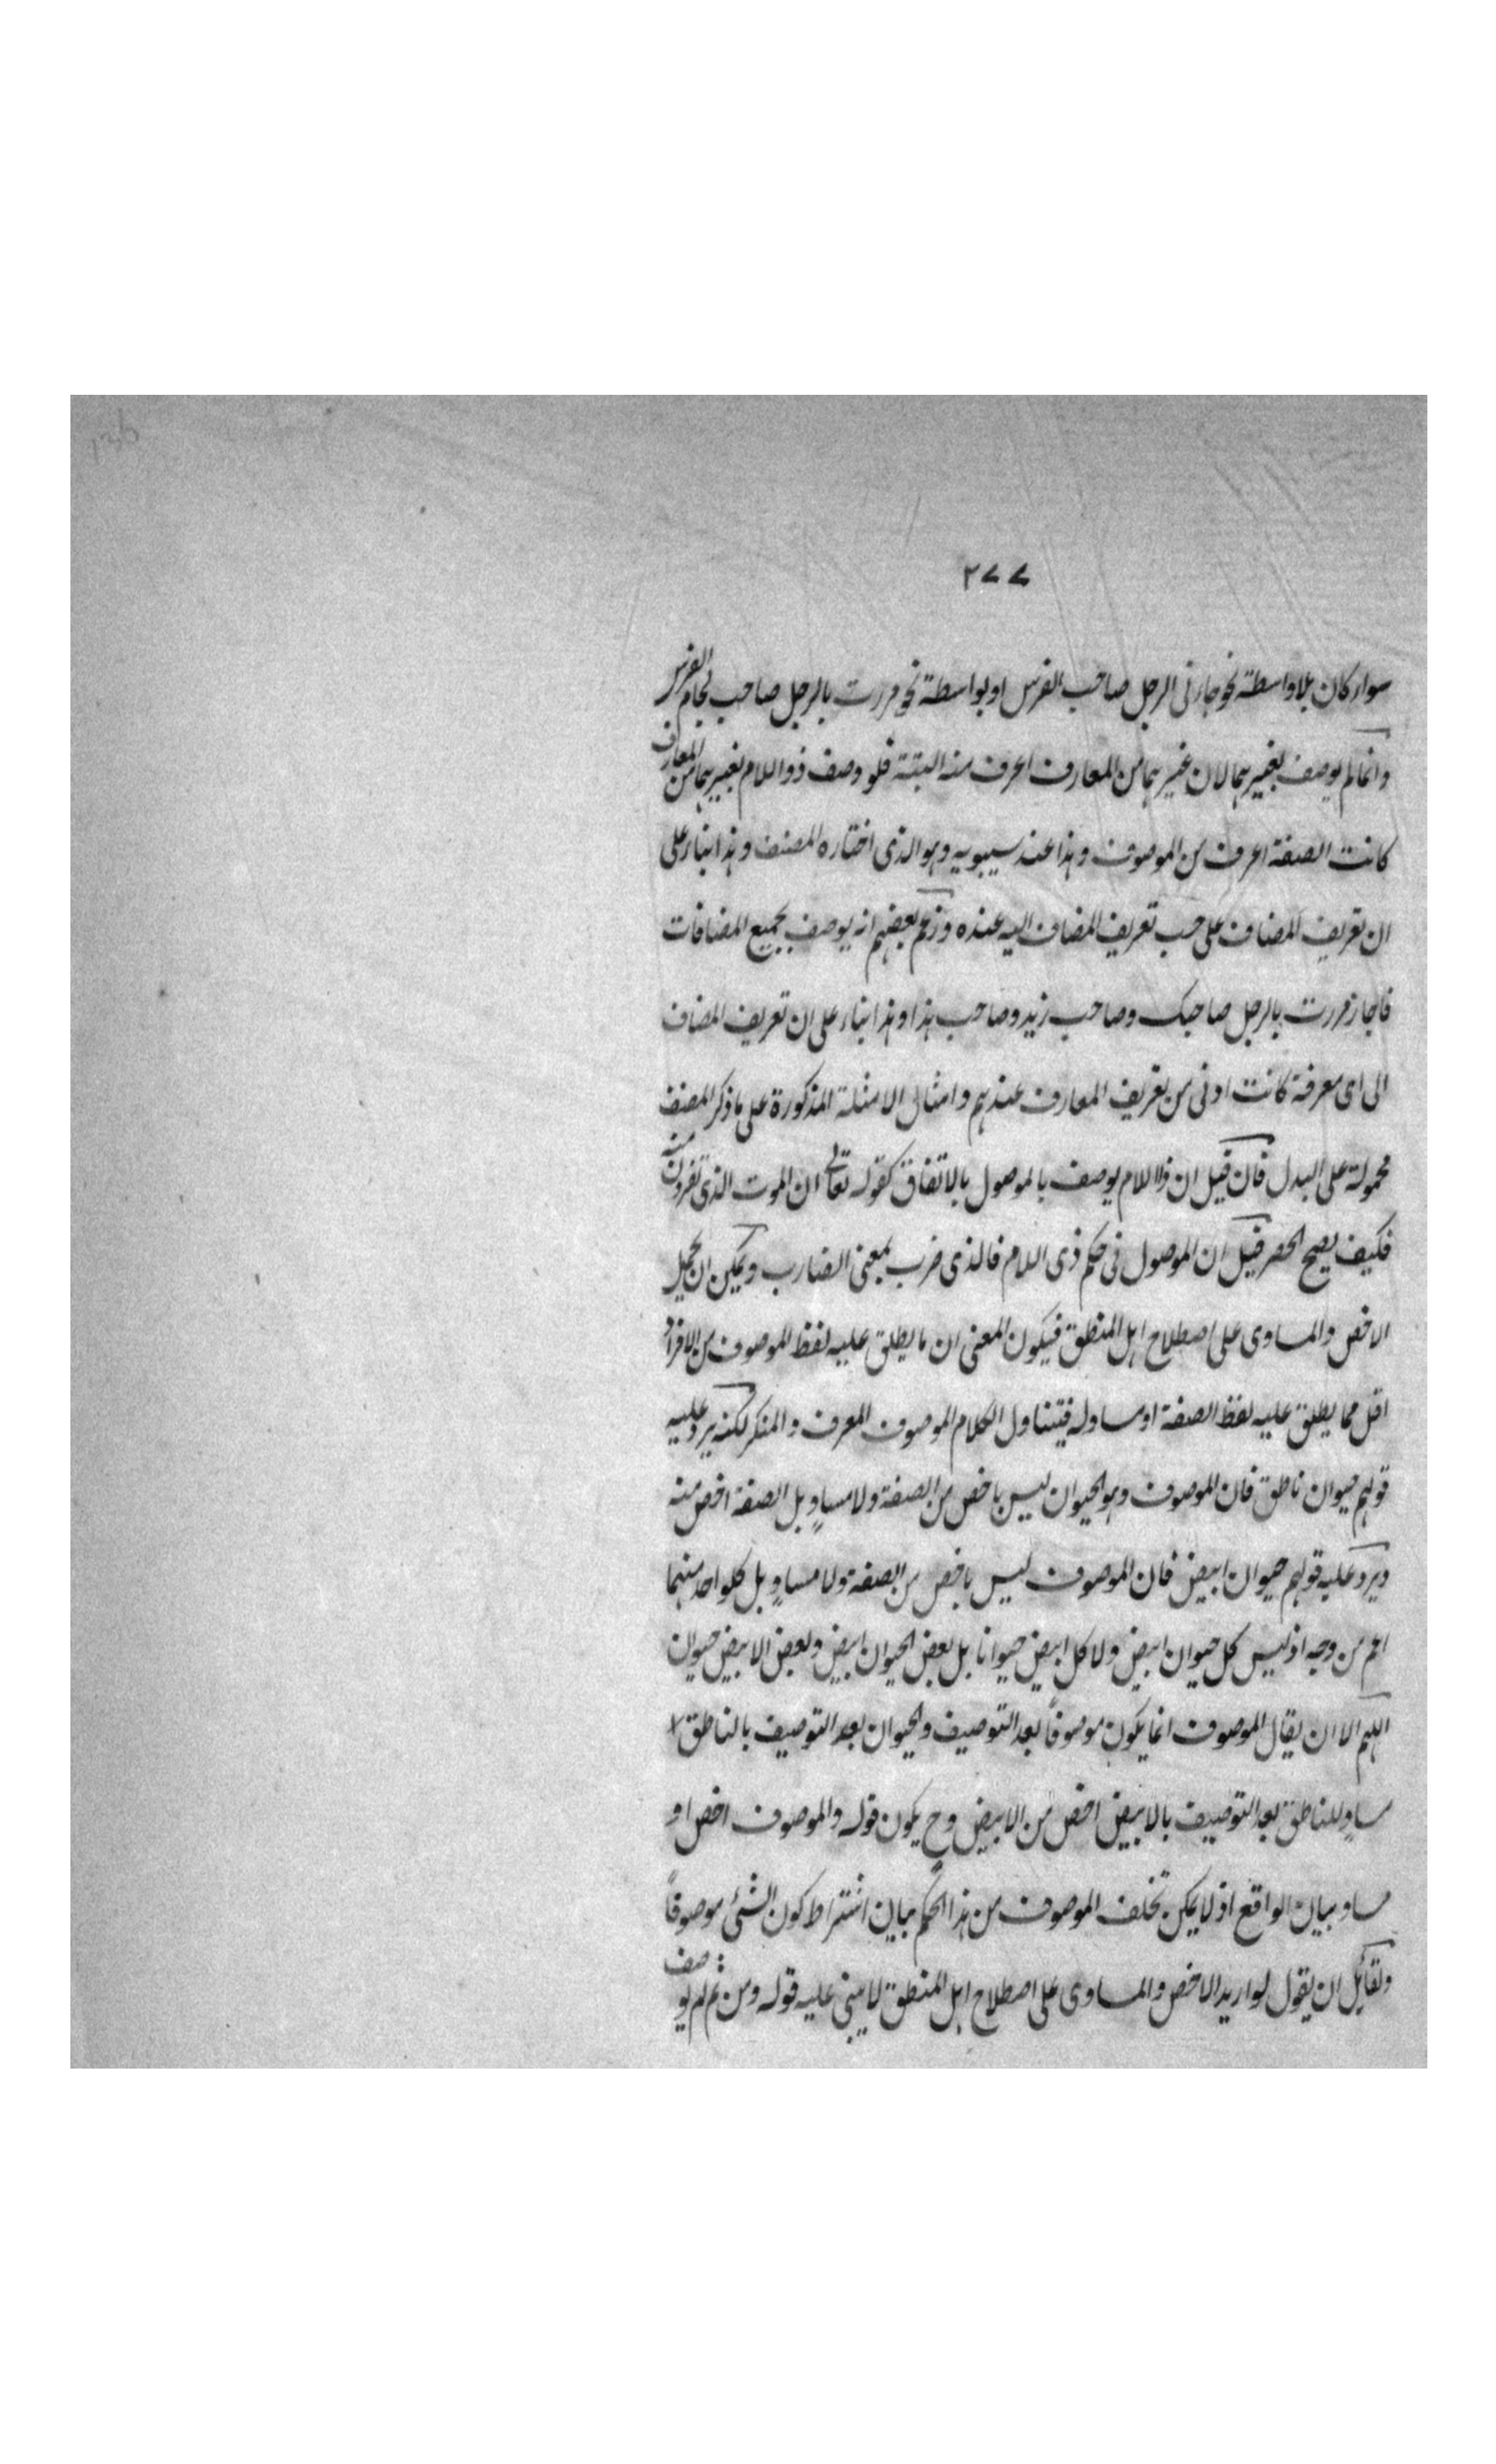 ٢٧٧
سواء كان بلا واسطة نحو جاءنى الرجل صاحب الفرس او بواسطة نحو مررت بالرجل صاحب لجام الفرس
وانما لم يوصف بغيرهما لان غيرهما من المعارف اعرف منه البتة فلو وصف ذو اللام بغيرهما من المعارف
كانت الصفة اعرف من الموصوف وهذا عند سيبويه وهو الذى اختاره المصنف وهذا بناء على
ان تعريف المضاف على حسب تعريف المضاف اليه عنده وزعم بعضهم انه يوصف بجميع المضافات
فاجاز مررت بالرجل صاحبك وصاحب زيد وصاحب هذا وهذا بناء على ان تعريف المضاف
الى اى معرفة كانت ادنى من تعريف المعارف عندهم وامثال الامثلة المذكورة على ما ذكر المصنف
محمولة على البدل فان قيل ان ذا اللام يوصف بالموصول بالاتفاق كقوله تعالى ان الموت الذى تفرون منه
فكيف يصح الحصر قيل ان الموصول فى حكم ذى اللام فالذى ضرب بمعنى الضارب ويمكن ان يحمل
الاخص والمساوى على اصطلاح اهل المنطق فيكون المعنى ان ما يطلق عليه لفظ الموصوف من الافراد
اقل مما يطلق عليه لفظ الصفة او مساو له فيتناول الكلام الموصوف المعرف والمنكر لكنه يرد عليه
قولهم حيوان ناطق فان الموصوف وهو الحيوان ليس باخص من الصفة ولا مساوٍ بل الصفة اخص منه
ويرد عليه قولهم حيوان ابيض فان الموصوف ليس باخص من الصفة ولا مساوٍ بل كلواحد منهما
اعم من وجه اذ ليس كل حيوان ابيض ولا كل ابيض حيوانا بل بعض الحيوان ابيض وبعض الابيض حيوان
اللهم الا ان يقال الموصوف انما يكون موصوفاً بعد التوصيف والحيوان بعد التوصيف بالناطق
مساوٍ للناطق بعد التوصيف بالابيض اخص من الابيض وح يكون قوله والموصوف اخص او
مساو بيان الواقع اذ لا يمكن تخلف الموصوف من هذا الحكم بيان اشتراط كون الشئ موصوفاً
ولقائل ان يقول لو اريد الاخص والمساوى على اصطلاح اهل المنطق لا يبنى عليه قوله ومن ثم لم يوصف